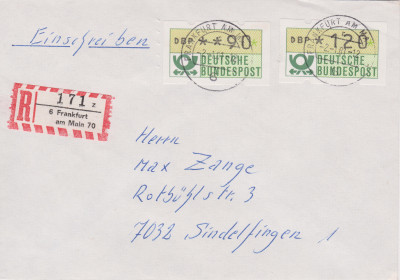 Einschreiben
DBP **90
DEUTSCHE
BUNDESPOST
DBP *120
DEUTSCHE
BUNDESPOST
FRANKFURT AM
FRANKFURT AM
R 171 z
6 Frankfurt
am Main 70
Herrn
Max Zange
Rotbühlstr. 3
7032 Sindelfingen 1